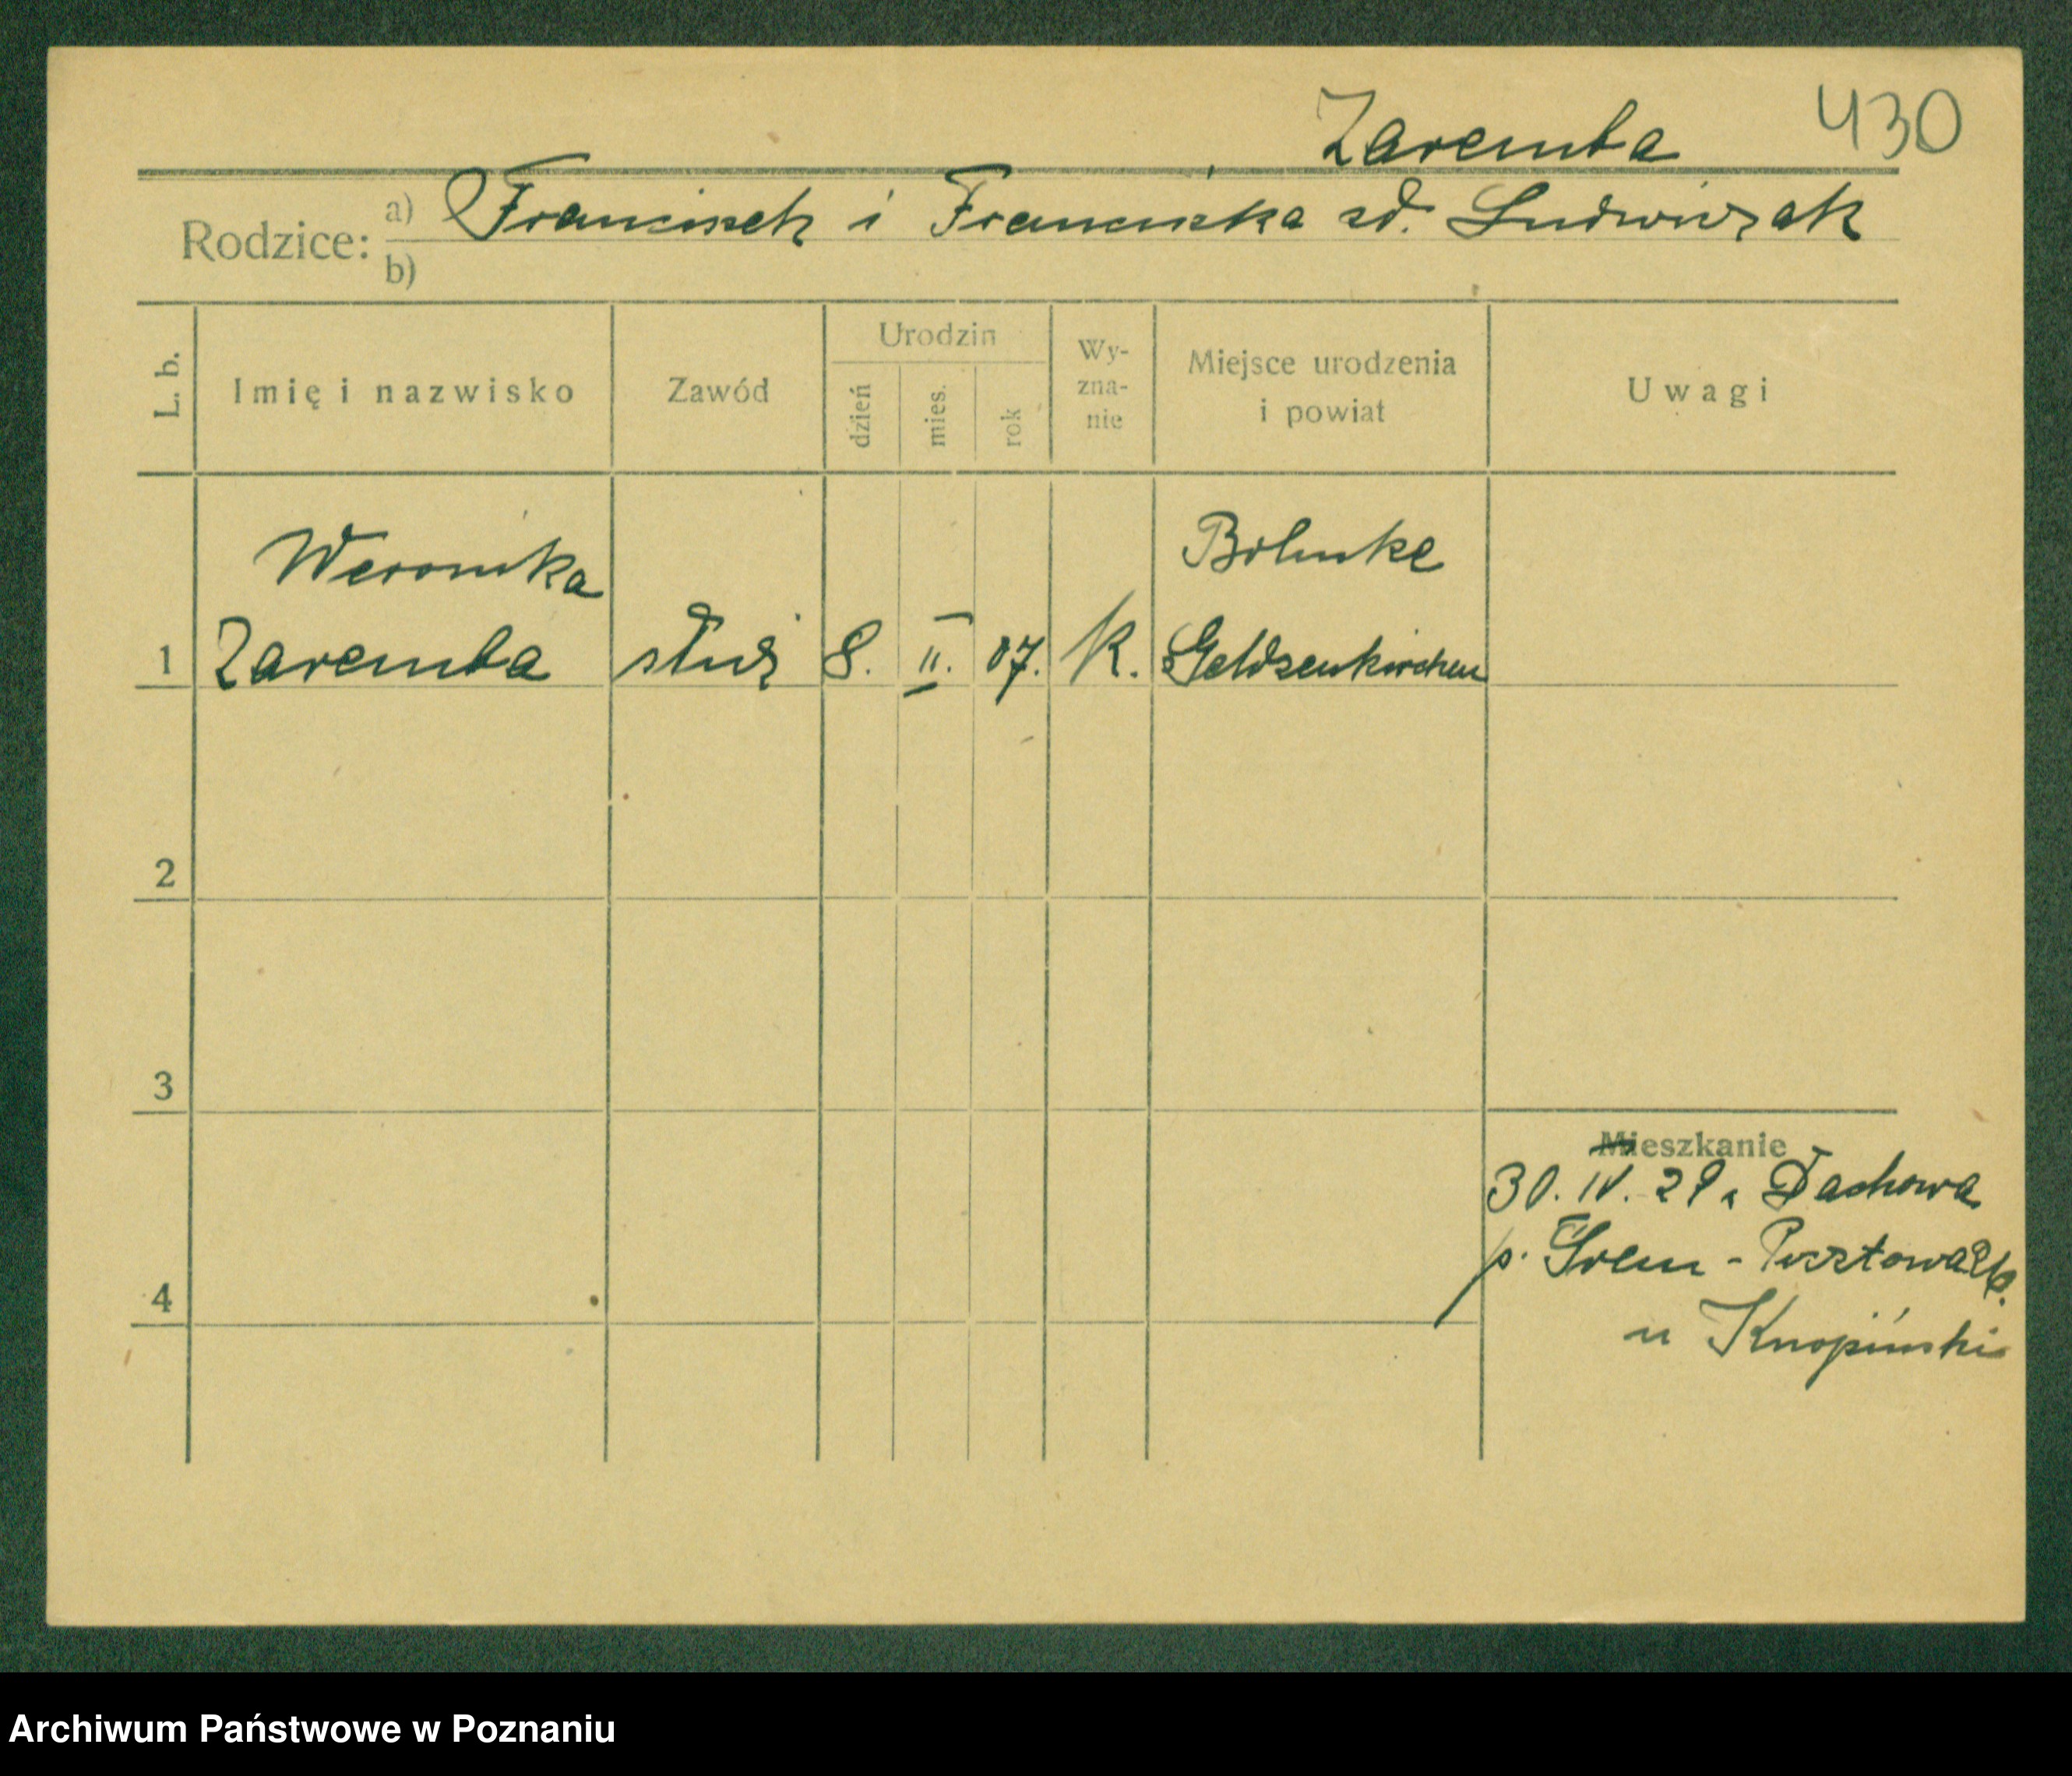 430
Zaremba
Rodzice: a) Franciszek i Franciszka zd. Ludwiczak
b)
L. b. Imię i nazwisko Zawód Urodzin dzień mies. rok Wyznanie Miejsce urodzenia i powiat Uwagi
Weronika
1 Zaremba służ 8. II. 07. K. Geldsenkirchen
2
3
Mieszkanie
30. IV. 29 Dachowa
p. Śrem -
4
u Knopiński
Archiwum Państwowe w Poznaniu